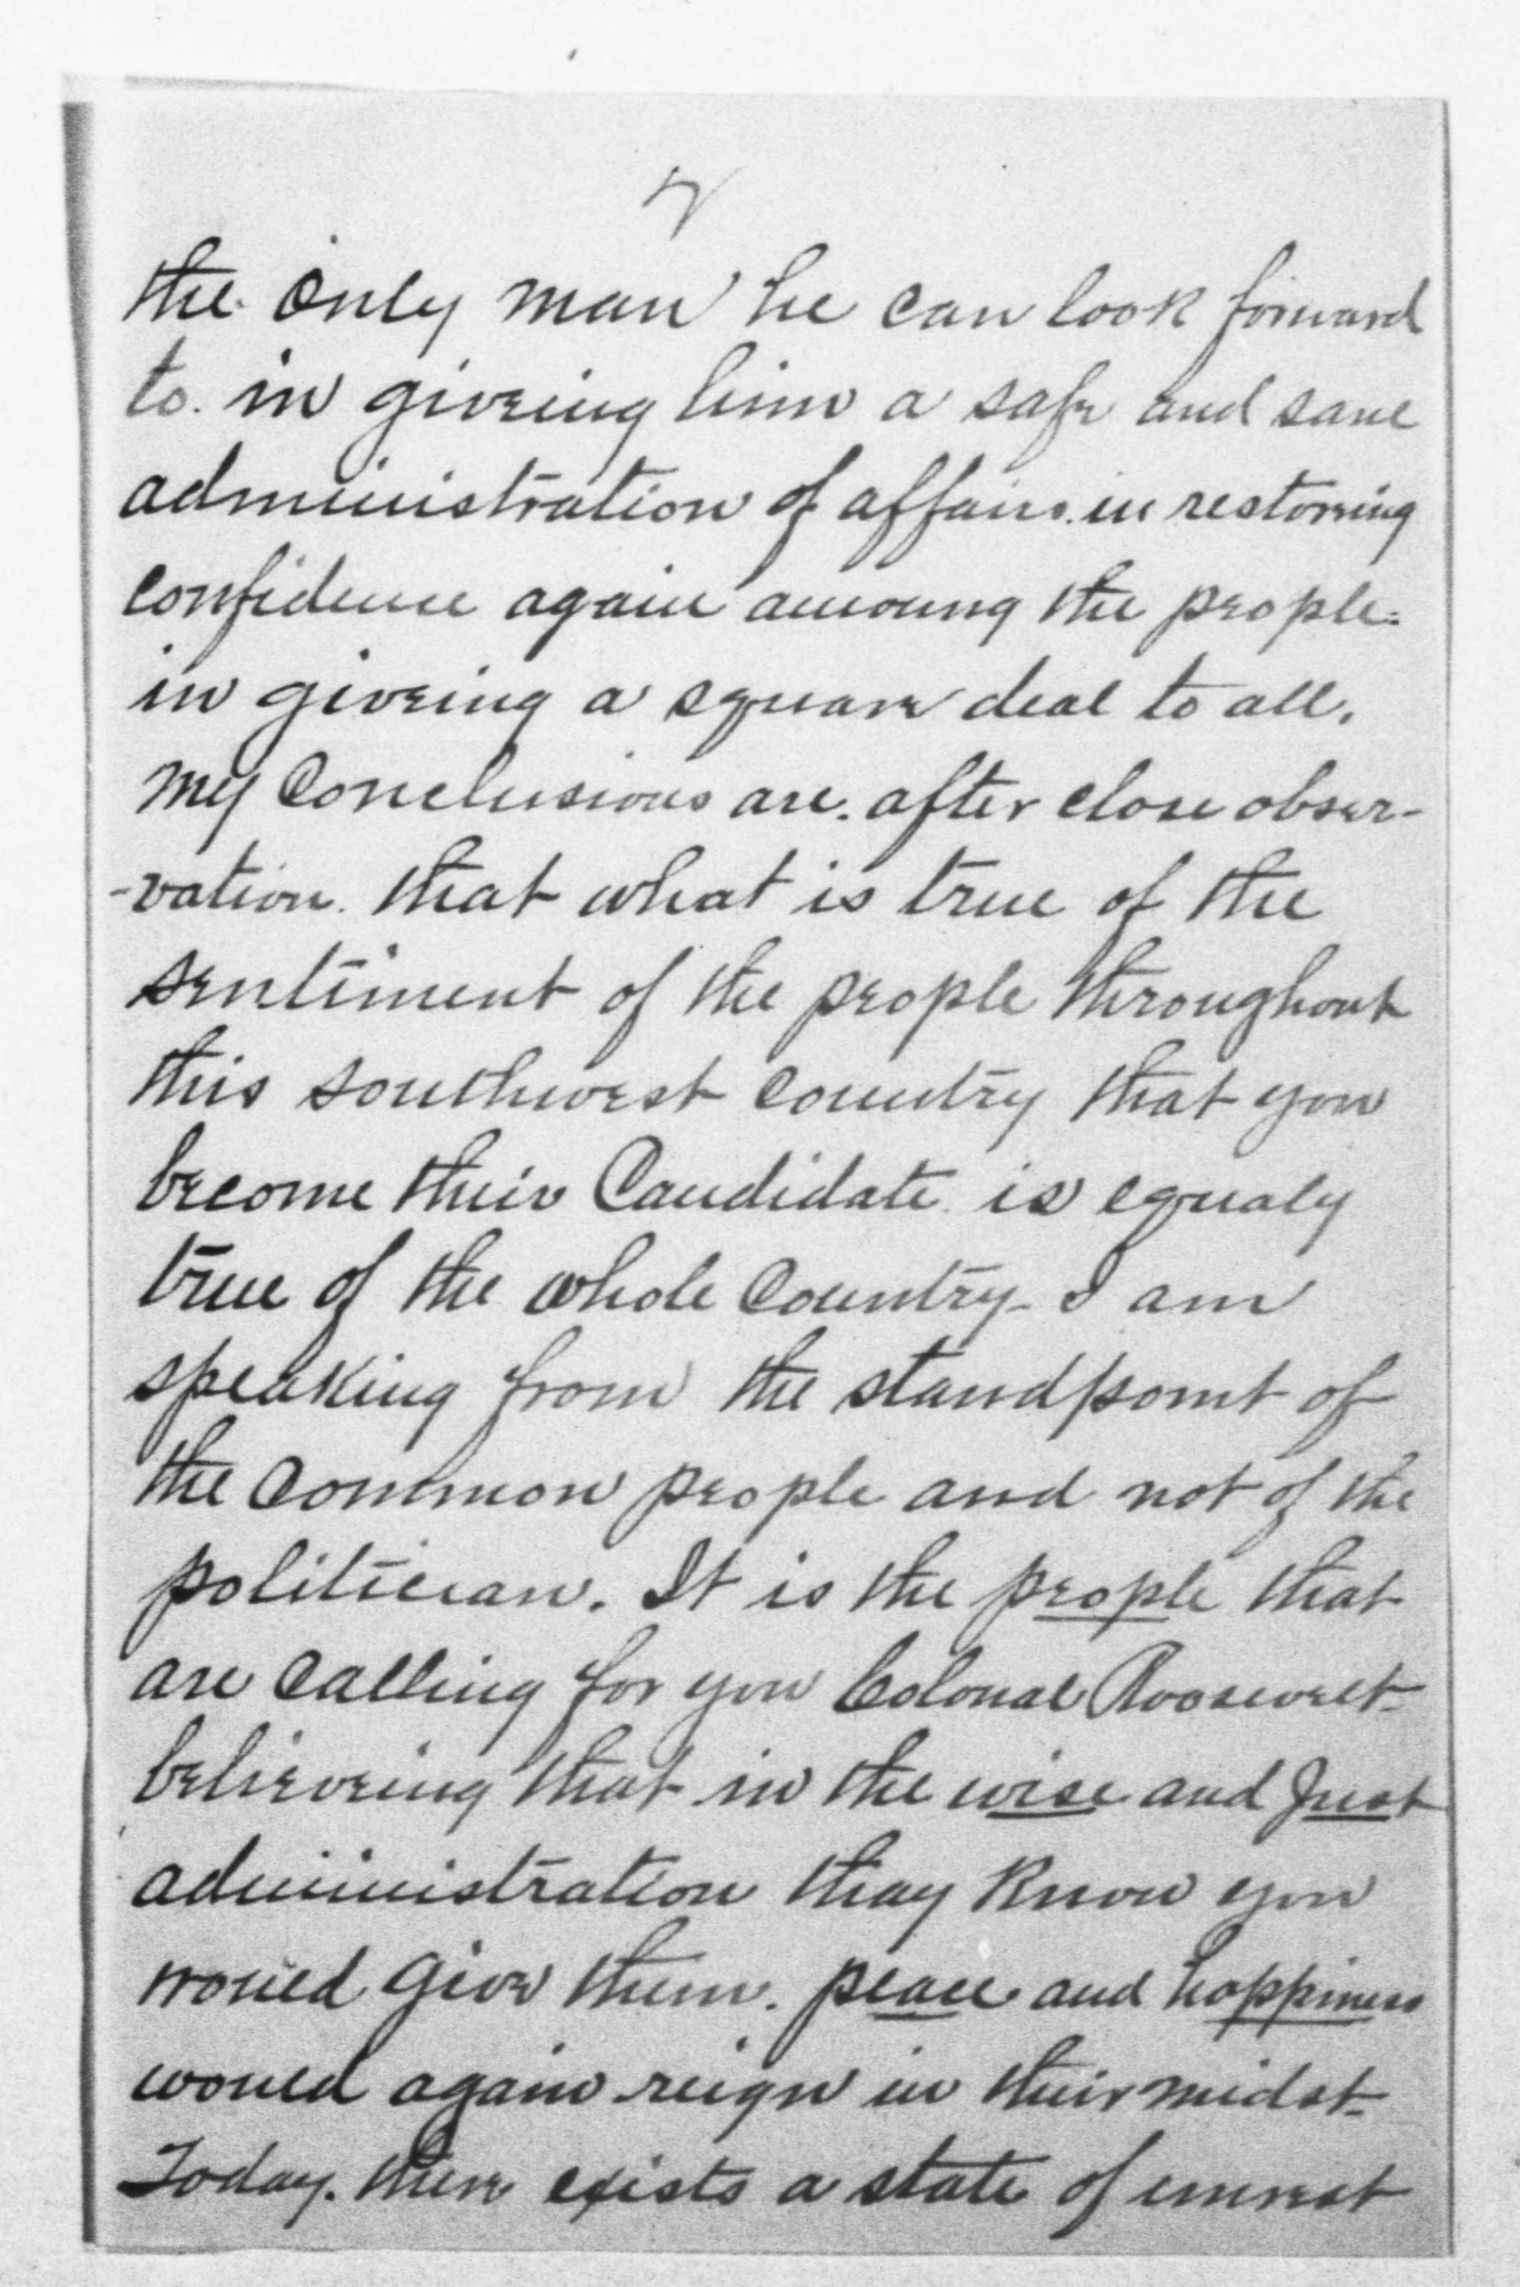 the only man he can look forward
to. in giveing him a safe and sane
administration of affairs. in restoreing
confidence again amoung the people.
in giveing a square deal to all.
My Conclusions are. after close obser-
-vation. that what is true of the
sentiment of the people throughout
this southwest country that you
become their Candidate is equaly
true of the whole Country - I am
speaking from the standpoint of
the Common people and not of the
politician. It is the people that
are Calling for you Colonal Roosevelt -
believeing that in the wise and Just
administration thay Know you
would give them. peace and happiness
would again reign in their midst -
Today. there exists a state of unrest